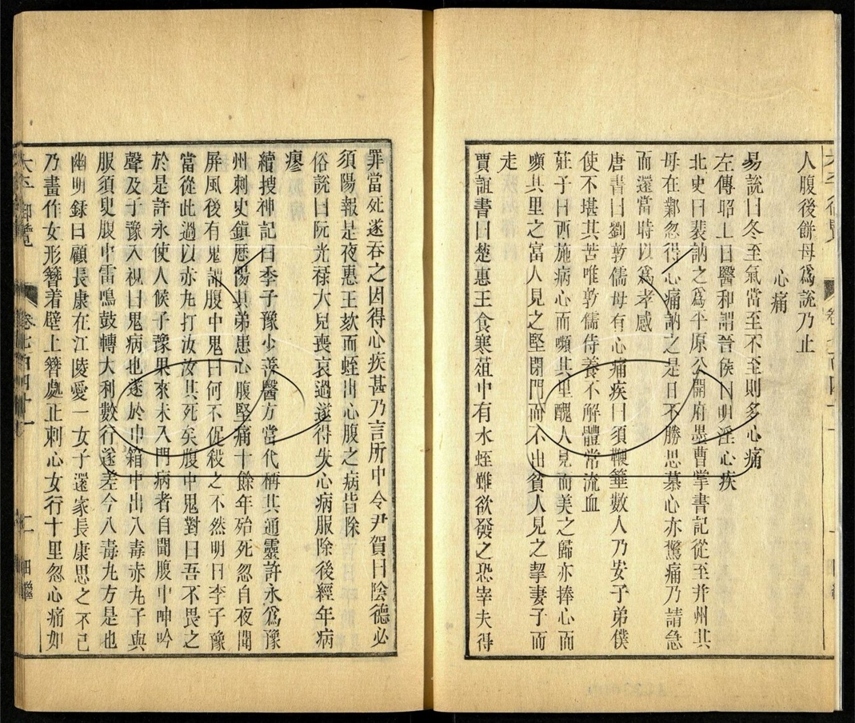 人腹後餅母爲說乃止
心痛
易說曰冬至氣當至不至則多心痛
左傳昭上曰醫和謂晉侯曰明淫心疾
北史曰裴訥之爲平原公開府墨曹掌書記從至并州其
母在鄴忽得心痛訥之是日不勝思慕心亦驚痛乃請急
而還當時以爲孝感
唐書曰劉敦儒母有心痛疾曰須鞭箠數人乃安子弟僕
使不堪其苦唯敦儒侍養不解體常流血
莊子曰西施病心而嚬其里醜人見而美之歸亦捧心而
嚬其里之富人見之堅閉門而不出貧人見之挈妻子而
走
賈誼書曰楚惠王食寒葅中有水蛭雖欲發之恐宰夫得
罪當死遂吞之因得心疾甚乃言所中令尹賀曰陰德必
須陽報是夜惠王欬而蛭出心腹之病皆除
俗說曰阮光祿大兒喪哀過遂得失心病服除後經年病
瘳
續搜神記曰李子豫少善醫方當代稱其通靈許永爲豫
州刺史鎮歷陽其弟患心腹堅痛十餘年殆死忽自夜聞
屏風後有鬼謂腹中鬼曰何不促殺之不然明日李子豫
當從此過以赤丸打汝汝其死矣腹中鬼對曰吾不畏之
於是許永使人候子豫果來未入門病者自聞腹中呻吟
聲及子豫入視曰鬼病也遂於巾箱中出八毒赤丸子與
服須臾腹中雷鳴鼓轉大利數行遂差今八毒丸方是也
幽明錄曰顧長康在江陵愛一女子還家長康思之不已
乃畫作女形簪着壁上簪處正刺心女行十里忽心痛如